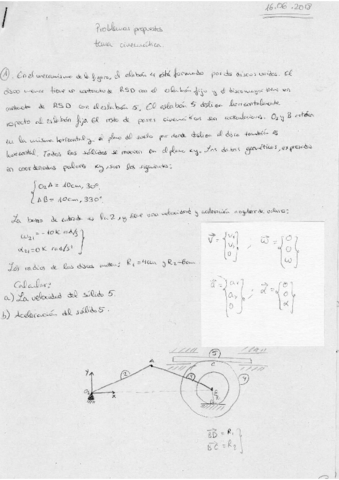 16-06-2018
1
Problemas propuestos
tema cinemática.
A. En el mecanismo de la figura, el eslabón está formado por dos discos unidos. El
disco menor tiene un contacto de RSD con el eslabón fijo y el disco mayor tiene un
contacto de RSD con el eslabón 5. El eslabón 5 desliza horizontalmente
respecto al eslabón fijo. El resto de pares cinemáticos son articulaciones. O₂ y B están
en la misma horizontal y el plano del suelo por donde desliza el disco también es
horizontal. Todos los sólidos se mueven en el plano xy. Los datos geométricos, expresados
en coordenadas polares xy, son los siguientes:
O₂A = 10cm, 30º.
AB = 10cm, 330º
La barra de entrada es la 2, y tiene una velocidad y aceleración angular de valores:
ω₂₁ = -10k rad/s
α₂₁ = 0k rad/s²
Los radios de los discos son: R₁ = 4cm y R₂ = 6cm
Calcular:
a) La velocidad del sólido 5.
b) Aceleración del sólido 5.
V = {Vx Vy 0} , ω = {0 0 ω}
a = {ax ay 0} , α = {0 0 α}
5
y
A
C
2
3
4
O₂
x
B
D
BD = R₁
BC = R₂